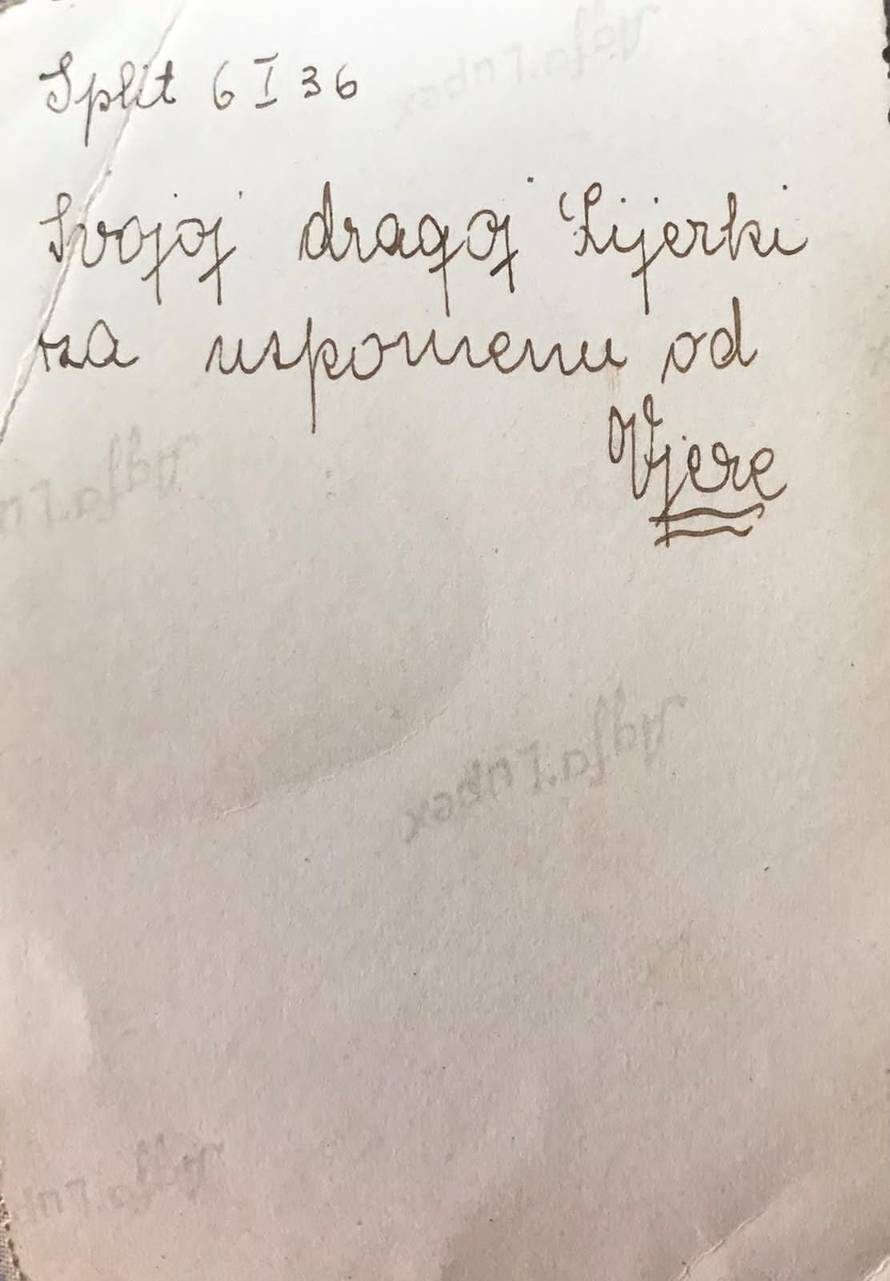 Agfa-Lupex
Split 6 I 36
Svojoj dragoj
za uspomenu od
Vjere
Agfa-Lu
Agfa-Lupex
Agfa-Lup